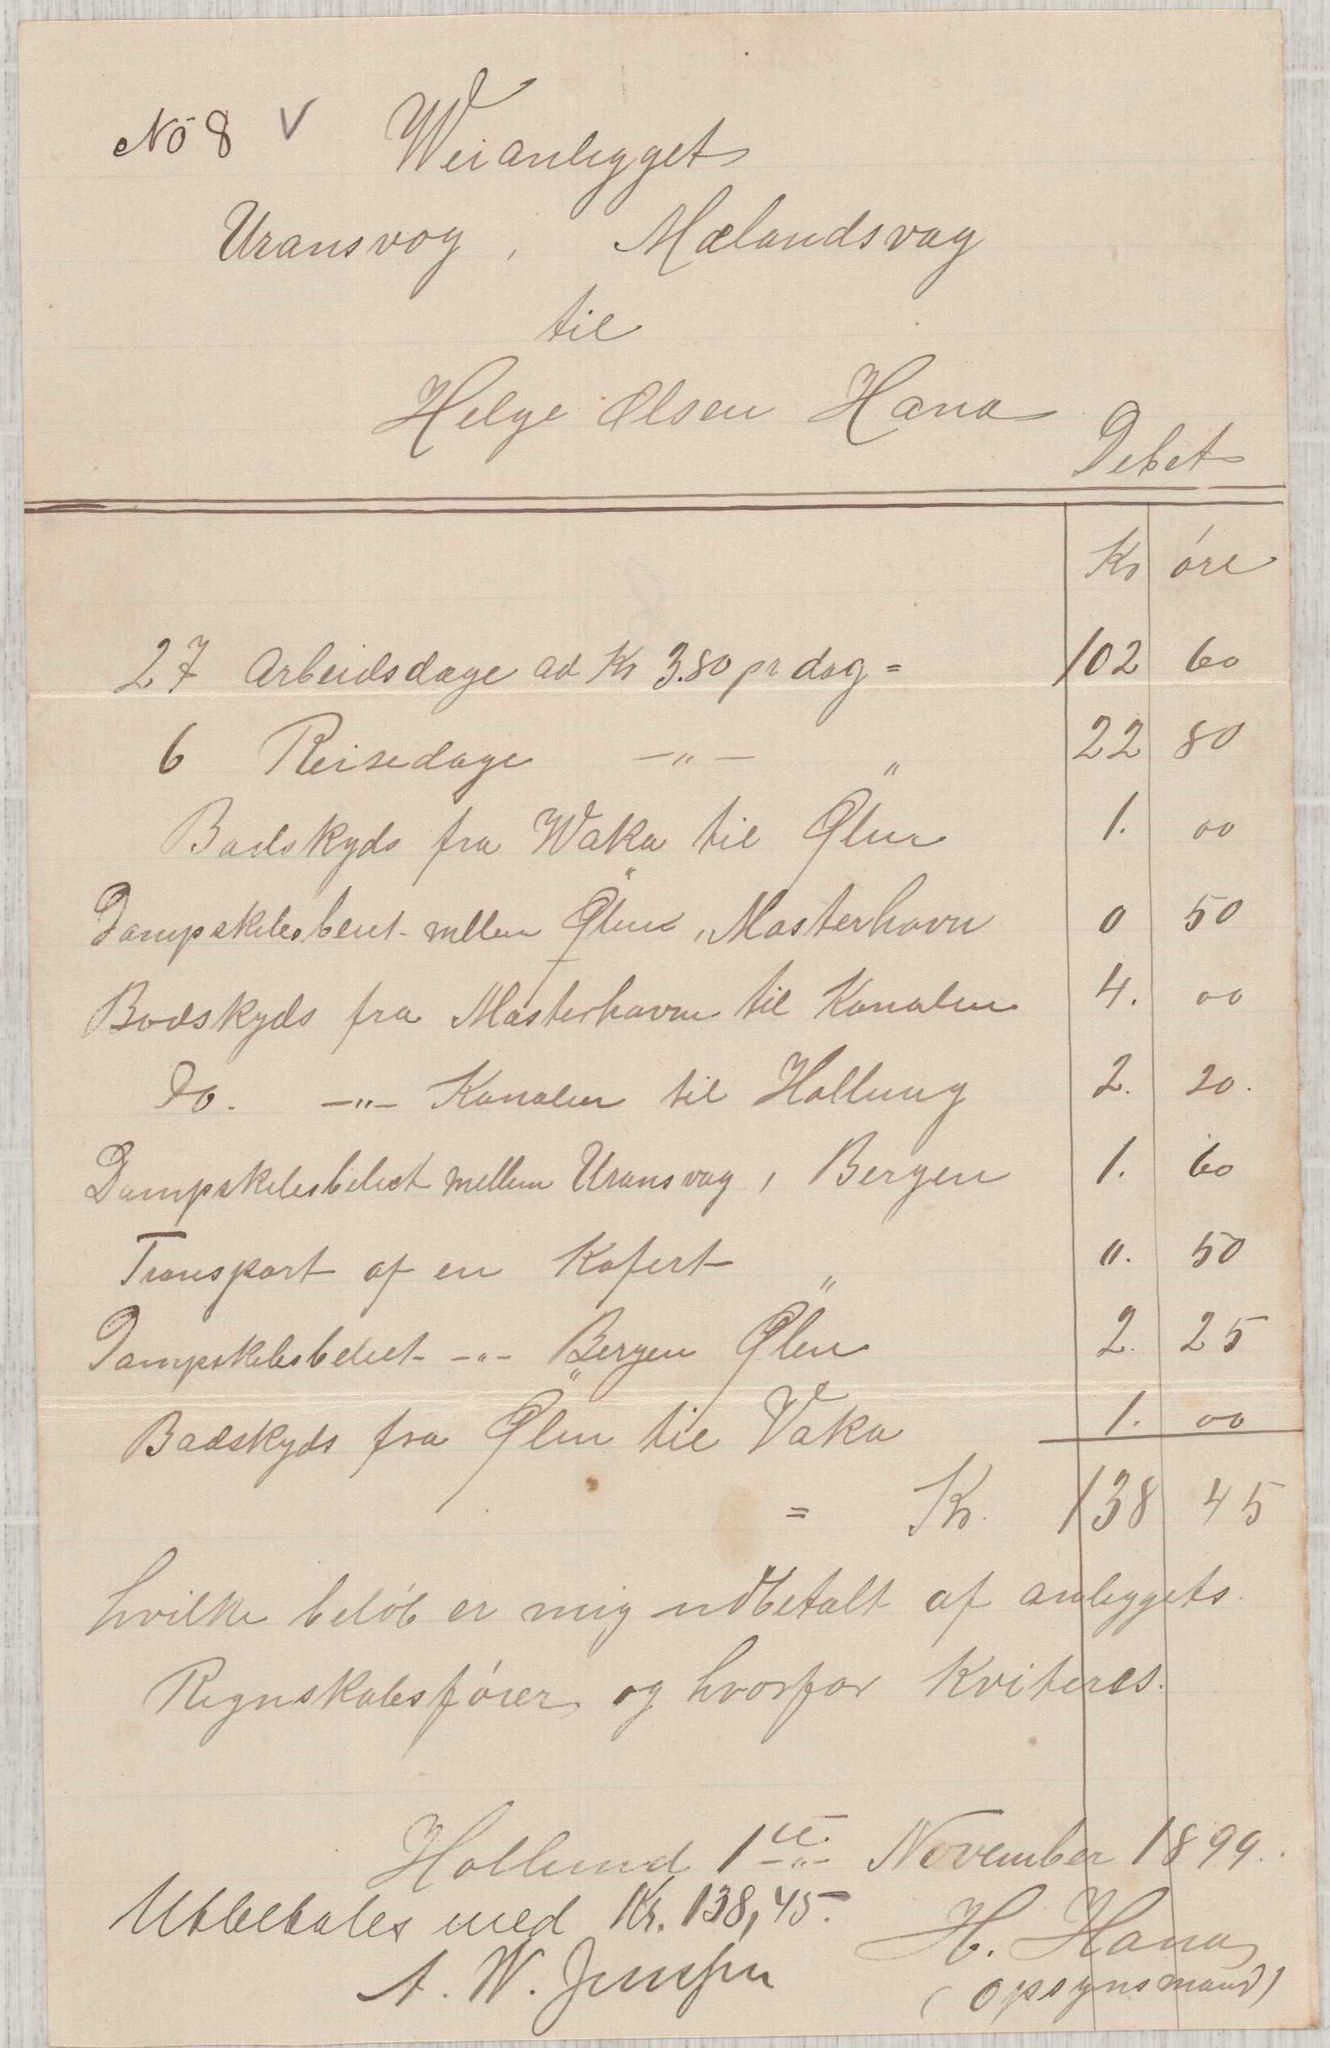 No 8 V Weianlegget
Uransvog , Mælandsvag
til
Helge Olsen Hana
Debet
Kr øre
27 Arbeidsdage ad Kr 3.80 pr dag = 102 60
6 Reisedage —"— " 22 80
Badskyds fra Waka til Ølen 1. 00
Dampskibsbelet mellem Ølen , Mosterhavn 0 50
Bodskyds fra Mosterhavn til Kanalen 4. 00
Do. —"— Kanalen til Hollung 2. 20.
Dampskibsbelet mellem Uransvag , Bergen 1. 60
Transport af en Kofert " 0. 50
Dampskibsbelet —"— Bergen Ølen 2. 25
Badskyds fra Ølen til Vaka 1. 00
= Kr. 138 45
hvilke beløb er mig udbetalt af anleggets
Regnskabsfører og hvorfor Kviteres.
Hollund 1te November 1899.
Utbetales med Kr. 138,45.
H. Hana
A. W. Jenssen
(Opsynsmand)